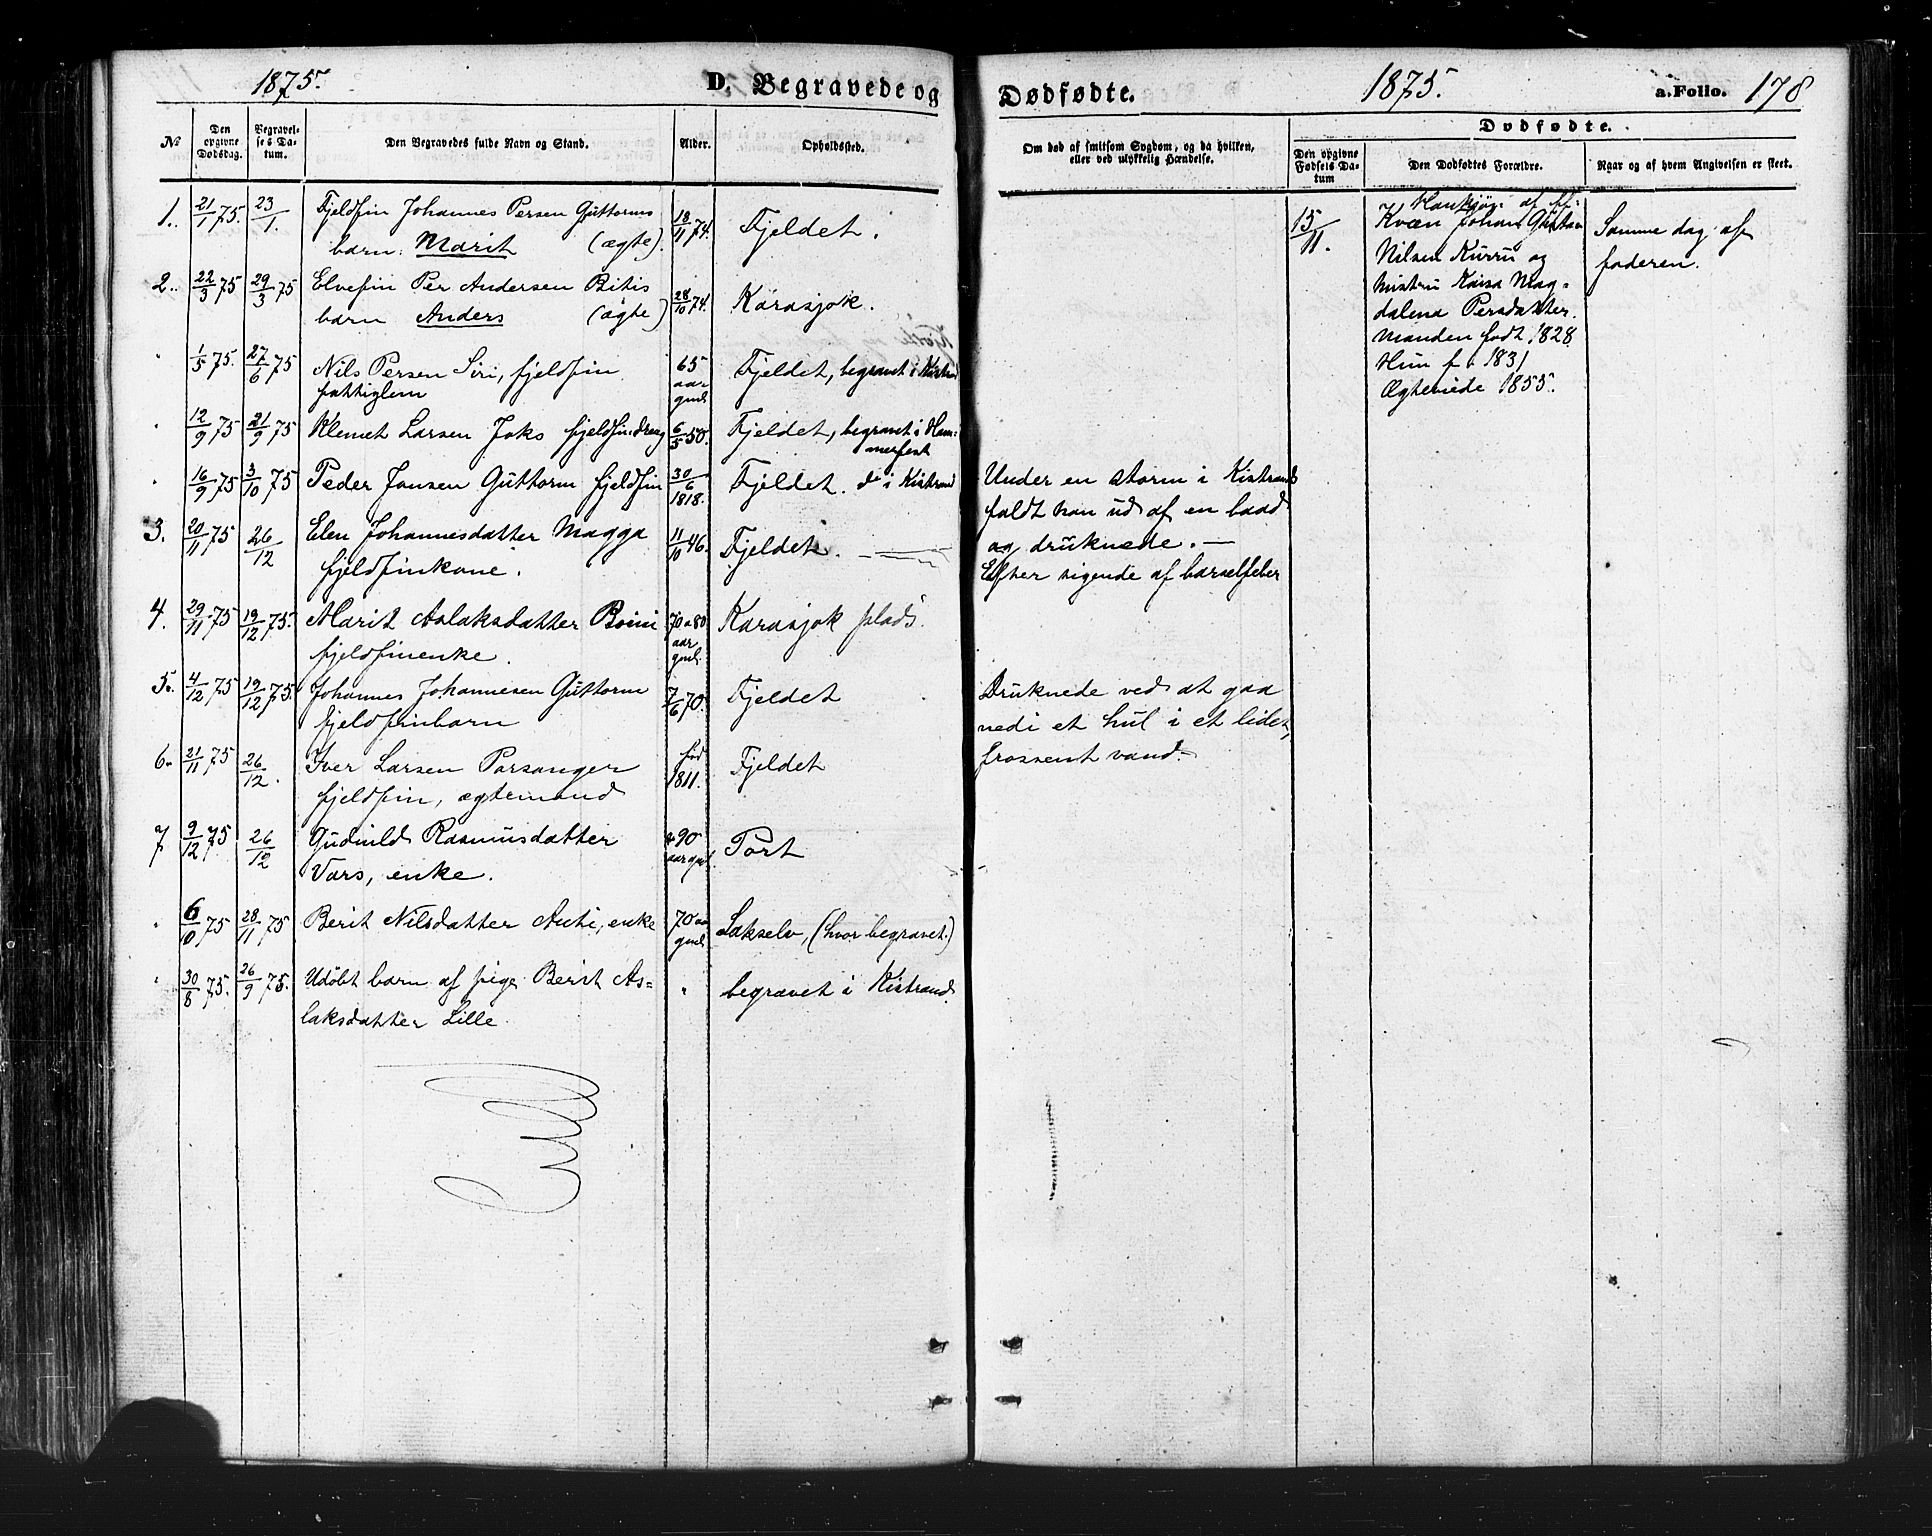 1875.
D. Begravede og
Dødfødte.
1875.
a. Folio. 178
№
Den opgivne Dødsdag.
Begravelses Datum.
Den Begravedes fulde Navn og Stand.
Alder.
Opholdssted.
Om død af smitsom Sygdom, og da hvilken,
eller ved ulykkelig Hændelse.
Dødfødte.
Den opgivne Fødsels Datum
Den Dødfødtes Forældre.
Naar og af hvem Angivelsen er skeet.
1. 21/1 75. 23/1. Fjeldfin Johannes Persen Guttorms 18/11 74. Fjeldet.
barn: Marit (ægte).
2. 22/3 75 29/3 75 Elvefin Per Andersen Bitis 28/10 74. Karasjok.
barn Anders (ægte)
" 1/5 75. 27/6 75 Nils Persen Siri, fjeldfin 65 aar gml. Fjeldet, begravet i Kistrand
fattiglem
" 12/9 75 21/9 75 Klemet Larsen Joks fjeldfindreng 6/5 50. Fjeldet, begravet i Ham-
merfest
" 16/9 75 3/10 75 Peder Jonsen Guttorm fjeldfin 30/6 1818. Fjeldet. do i Kistrand
Under en storm i Kistrand
faldt han ud af en baad
og druknede. —
3. 20/11 75 26/12 Elen Johannesdatter Magga 11/10 46. Fjeldet.
fjeldfinkone.
Efter sigende af barselfeber
4. 29/11 75 19/12 75. Marit Aslaksdatter Boini 70 a 80 aar gml. Karasjok plads.
fjeldfinenke.
5. 4/12 75 19/12 75. Johannes Johannesen Guttorm 7/6 70. Fjeldet
fjeldfinbarn
Druknede ved at gaa
nedi et hul i et lidet,
frossent vand.
6. 21/11 75 26/12. Iver Larsen Porsanger fød 1811. Fjeldet
fjeldfin, ægtemand
7 9/12 75 26/12 Gudnild Rasmusdatter 90 aar gml. Port
Vars, enke.
" 6/10 75 28/11 75 Berit Nilsdatter Anti, enke 70 aar gml. Lakselv, (hvor begravet.)
" 30/8 75. 26/9 75. Udøbt barn af pige Berit As- " begravet i Kistrand
laksdatter Lille
15/11.
Hankjøn: af
Kvæn Johan Gustav
Nilsen Kurru og
hustru Kaisa Mag-
dalena Persdatter.
Manden født 1828
Hun f. 1831
Ægteviede 1855.
Samme dag af
faderen.